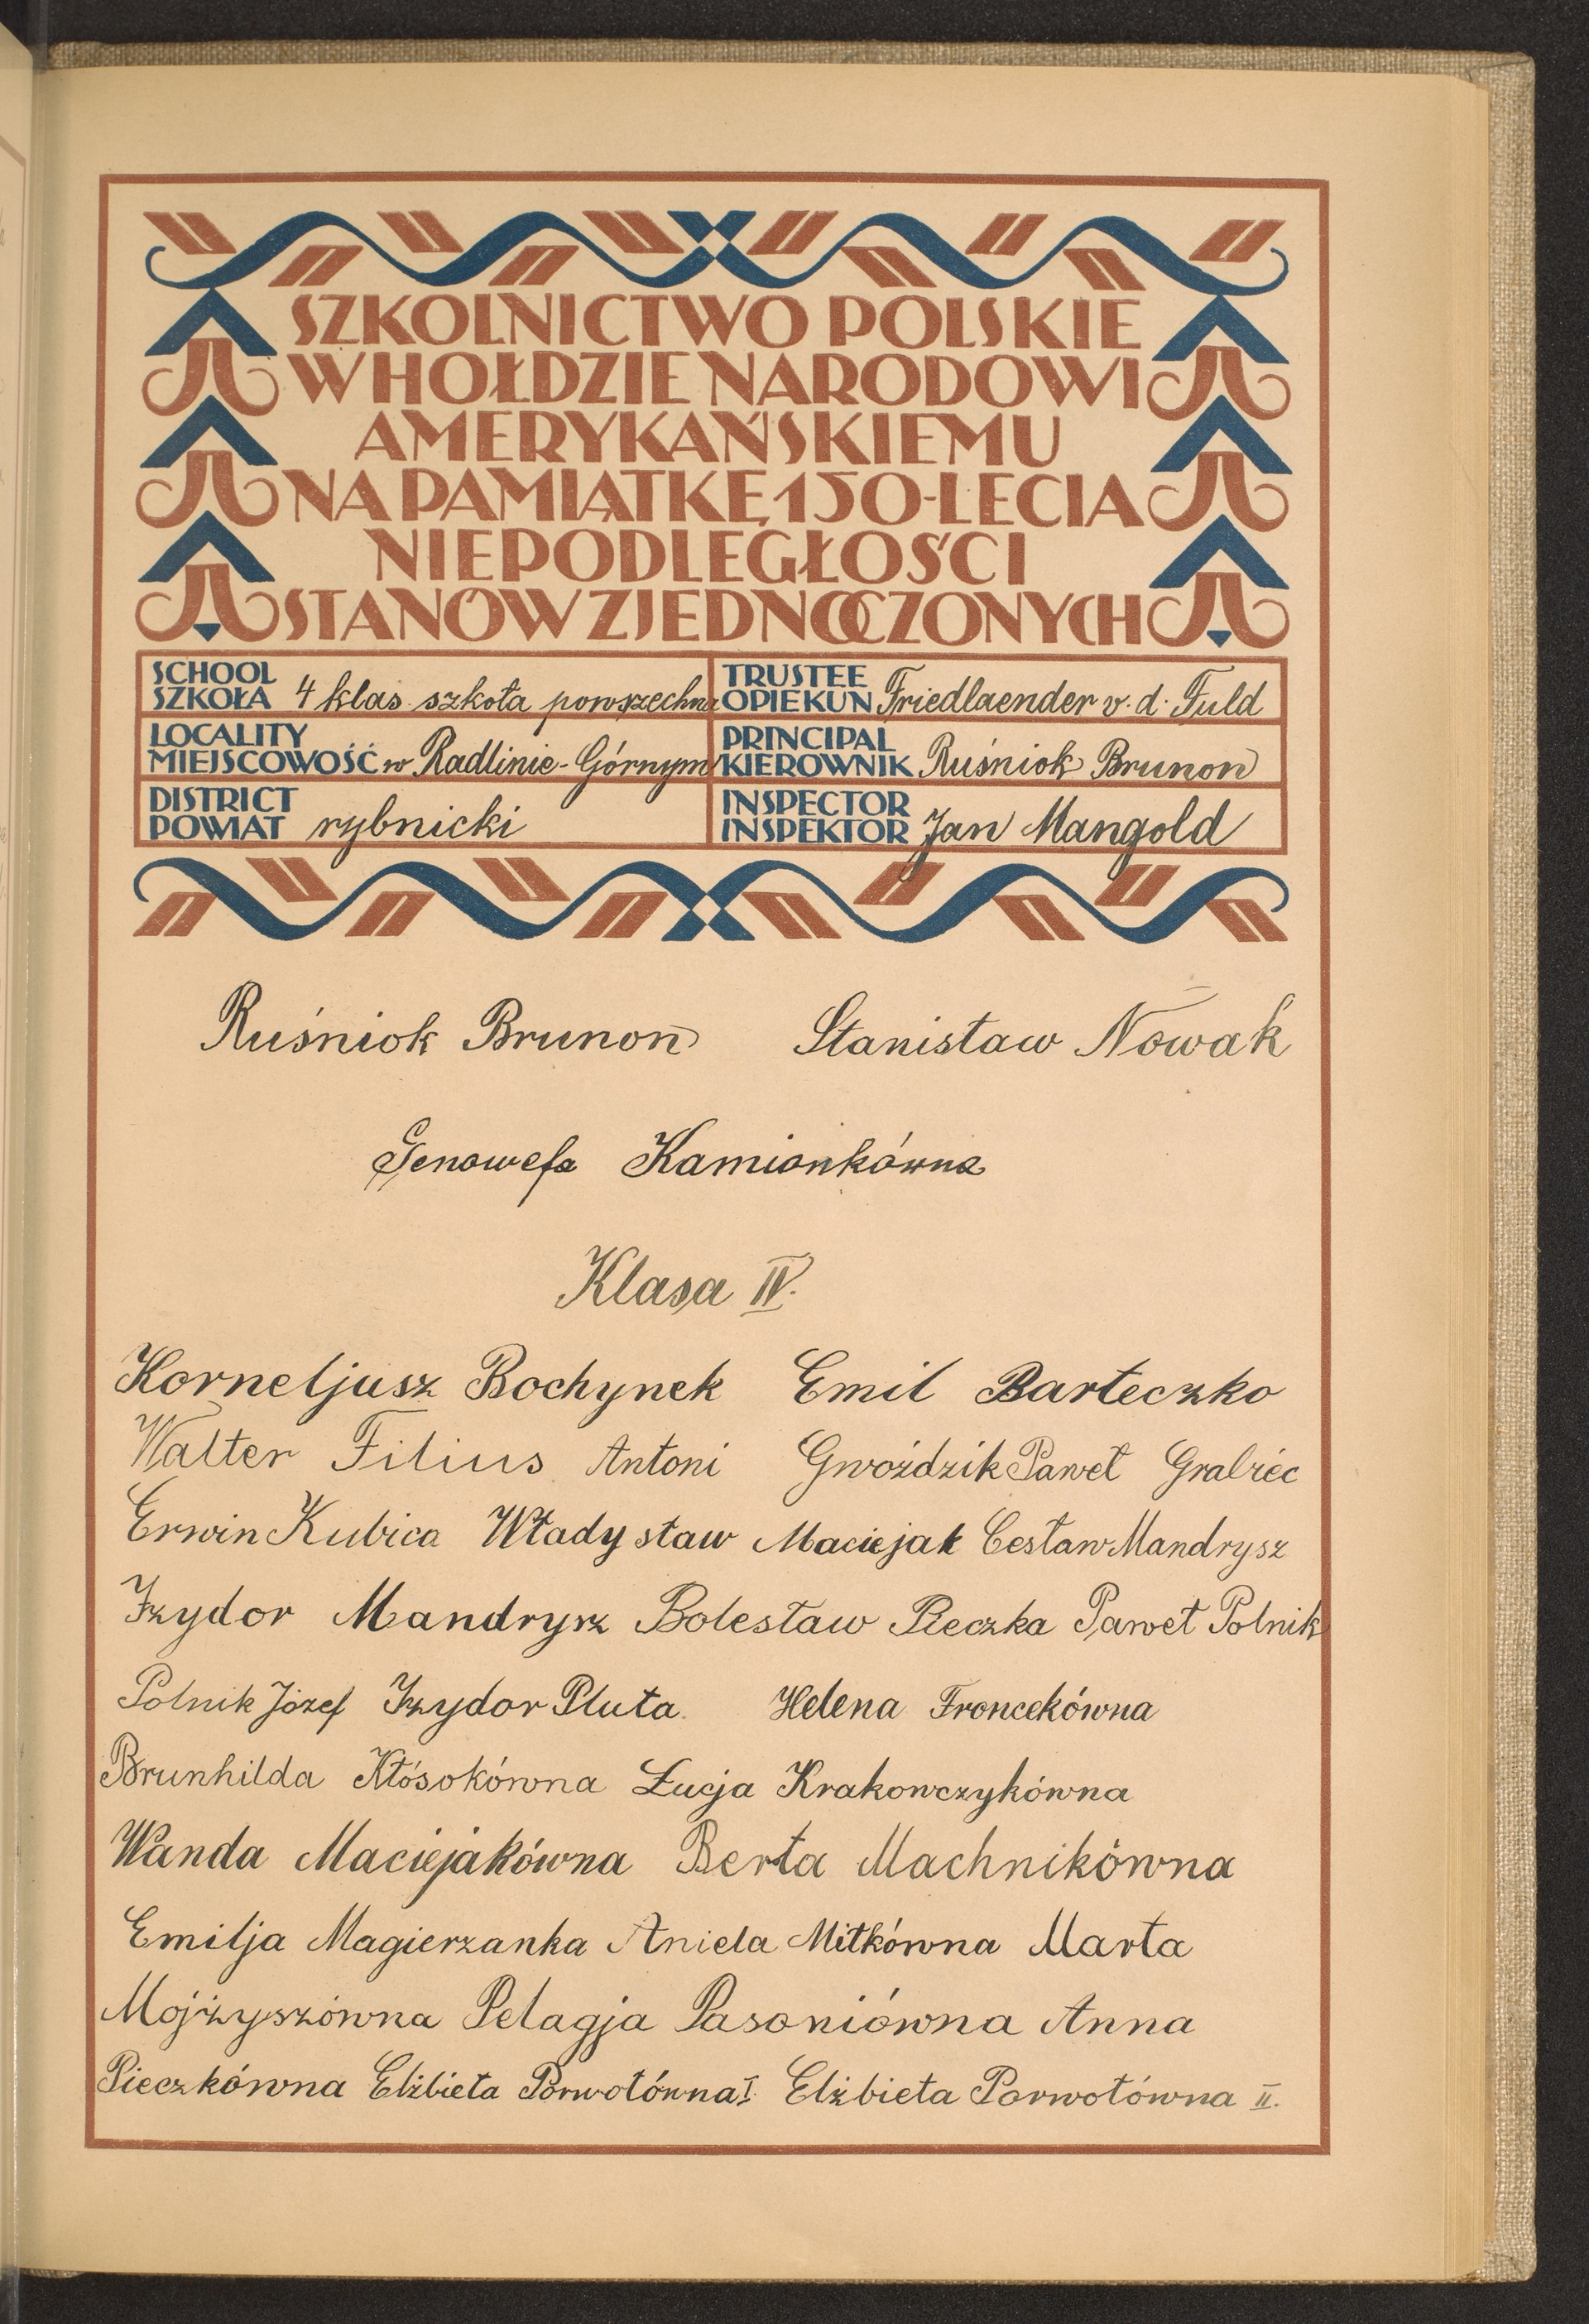 SZKOLNICTWO POLSKIE
W HOŁDZIE NARODOWI
AMERYKAŃSKIEMU
NA PAMIĄTKĘ 150-LECIA
NIEPODLEGŁOŚCI
STANÓW ZJEDNOCZONYCH
SCHOOL
SZKOŁA 4 klas. szkoła powszechna
TRUSTEE
OPIEKUN Friedlaender v. d. Fuld
LOCALITY
MIEJSCOWOŚĆ w Radlinie-Górnym
PRINCIPAL
KIEROWNIK Ruśniok Brunon
DISTRICT
POWIAT rybnicki
INSPECTOR
INSPEKTOR Jan Mangold
Ruśniok Brunon Stanisław Nowak
Genowefa Kamionkówna
Klasa IV.
Korneljusz Bochynek Emil Barteczko
Walter Filius Antoni Gwoździk Paweł Grabiec
Erwin Kubica Władysław Maciejak Cesław Mandrysz
Izydor Mandrysz Bolesław Pieczka Paweł Polnik
Polnik Józef Izydor Pluta Helena Froncekówna
Brunhilda Kłósokówna Łucja Krakowczykówna
Wanda Maciejakówna Berta Machnikówna
Emilja Magierzanka Aniela Mitkówna Marta
Mojżyszówna Pelagja Pasoniówna Anna
Pieczkówna Elżbieta Porwołówna I. Elżbieta Porwołówna II.